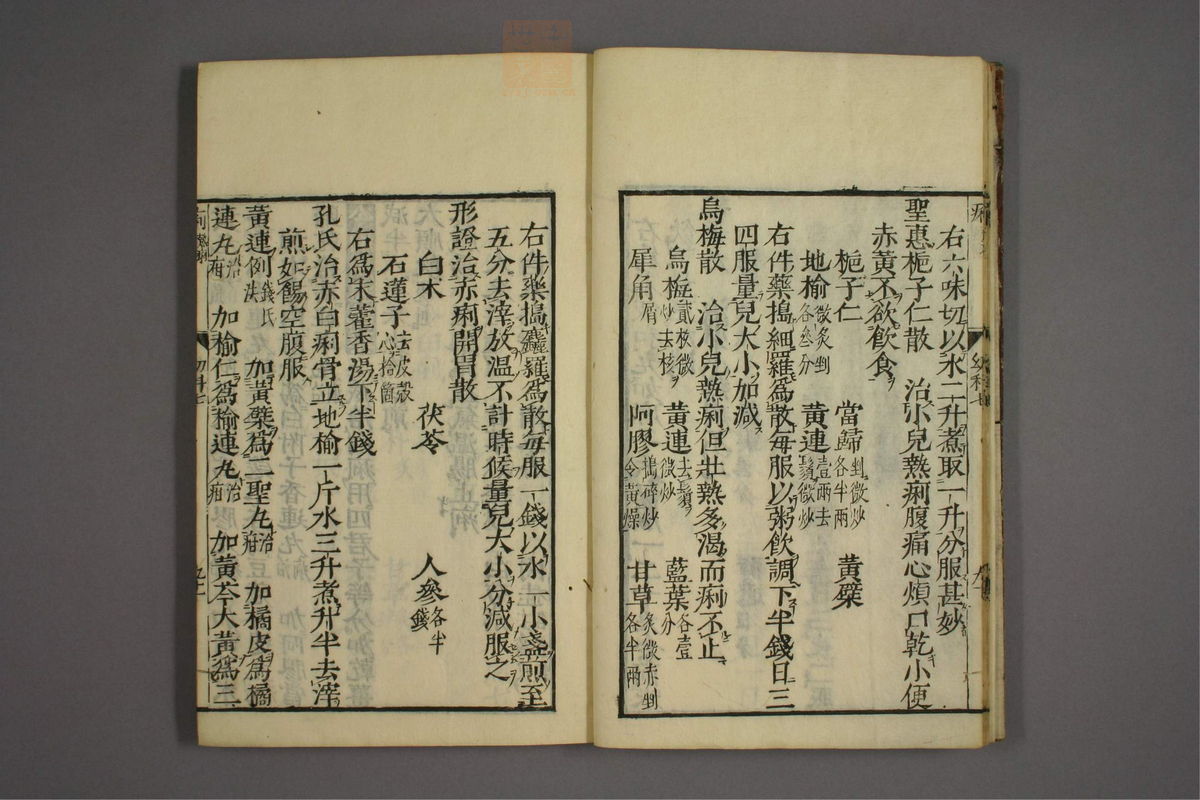 右六味切以水二升煮取一升分服甚妙
聖惠梔子仁散 治小兒熱痢腹痛心煩口乾小便
赤黃不欲飲食
梔子仁 當歸剉微炒各半兩 黃蘗
地榆微炙剉各叁分 黃連壹兩去鬚微炒
右件藥搗細羅爲散每服以粥飲調下半錢日三
四服量兒大小加減
烏梅散 治小兒熱痢但壯熱多渴而痢不止
烏梅貳枚微炒去核 黃連去鬚微炒 藍葉各壹分
犀角屑 阿膠搗碎炒令黃燥 甘草炙微赤剉各半兩
右件藥搗麤羅爲散每服一錢以水一小盞煎至
五分去滓放溫不計時候量兒大小分減服之
形證治赤痢開胃散
白朮 茯苓 人參各半錢
石蓮子去皮殼心拾箇
右爲末藿香湯下半錢
孔氏治赤白痢骨立地榆一斤水三升煮升半去滓
煎如餳空腹服
黃連例錢氏法 加黃蘗爲二聖丸治疳 加橘皮爲橘
連丸治疳 加榆仁爲榆連丸治疳 加黃芩大黃爲三